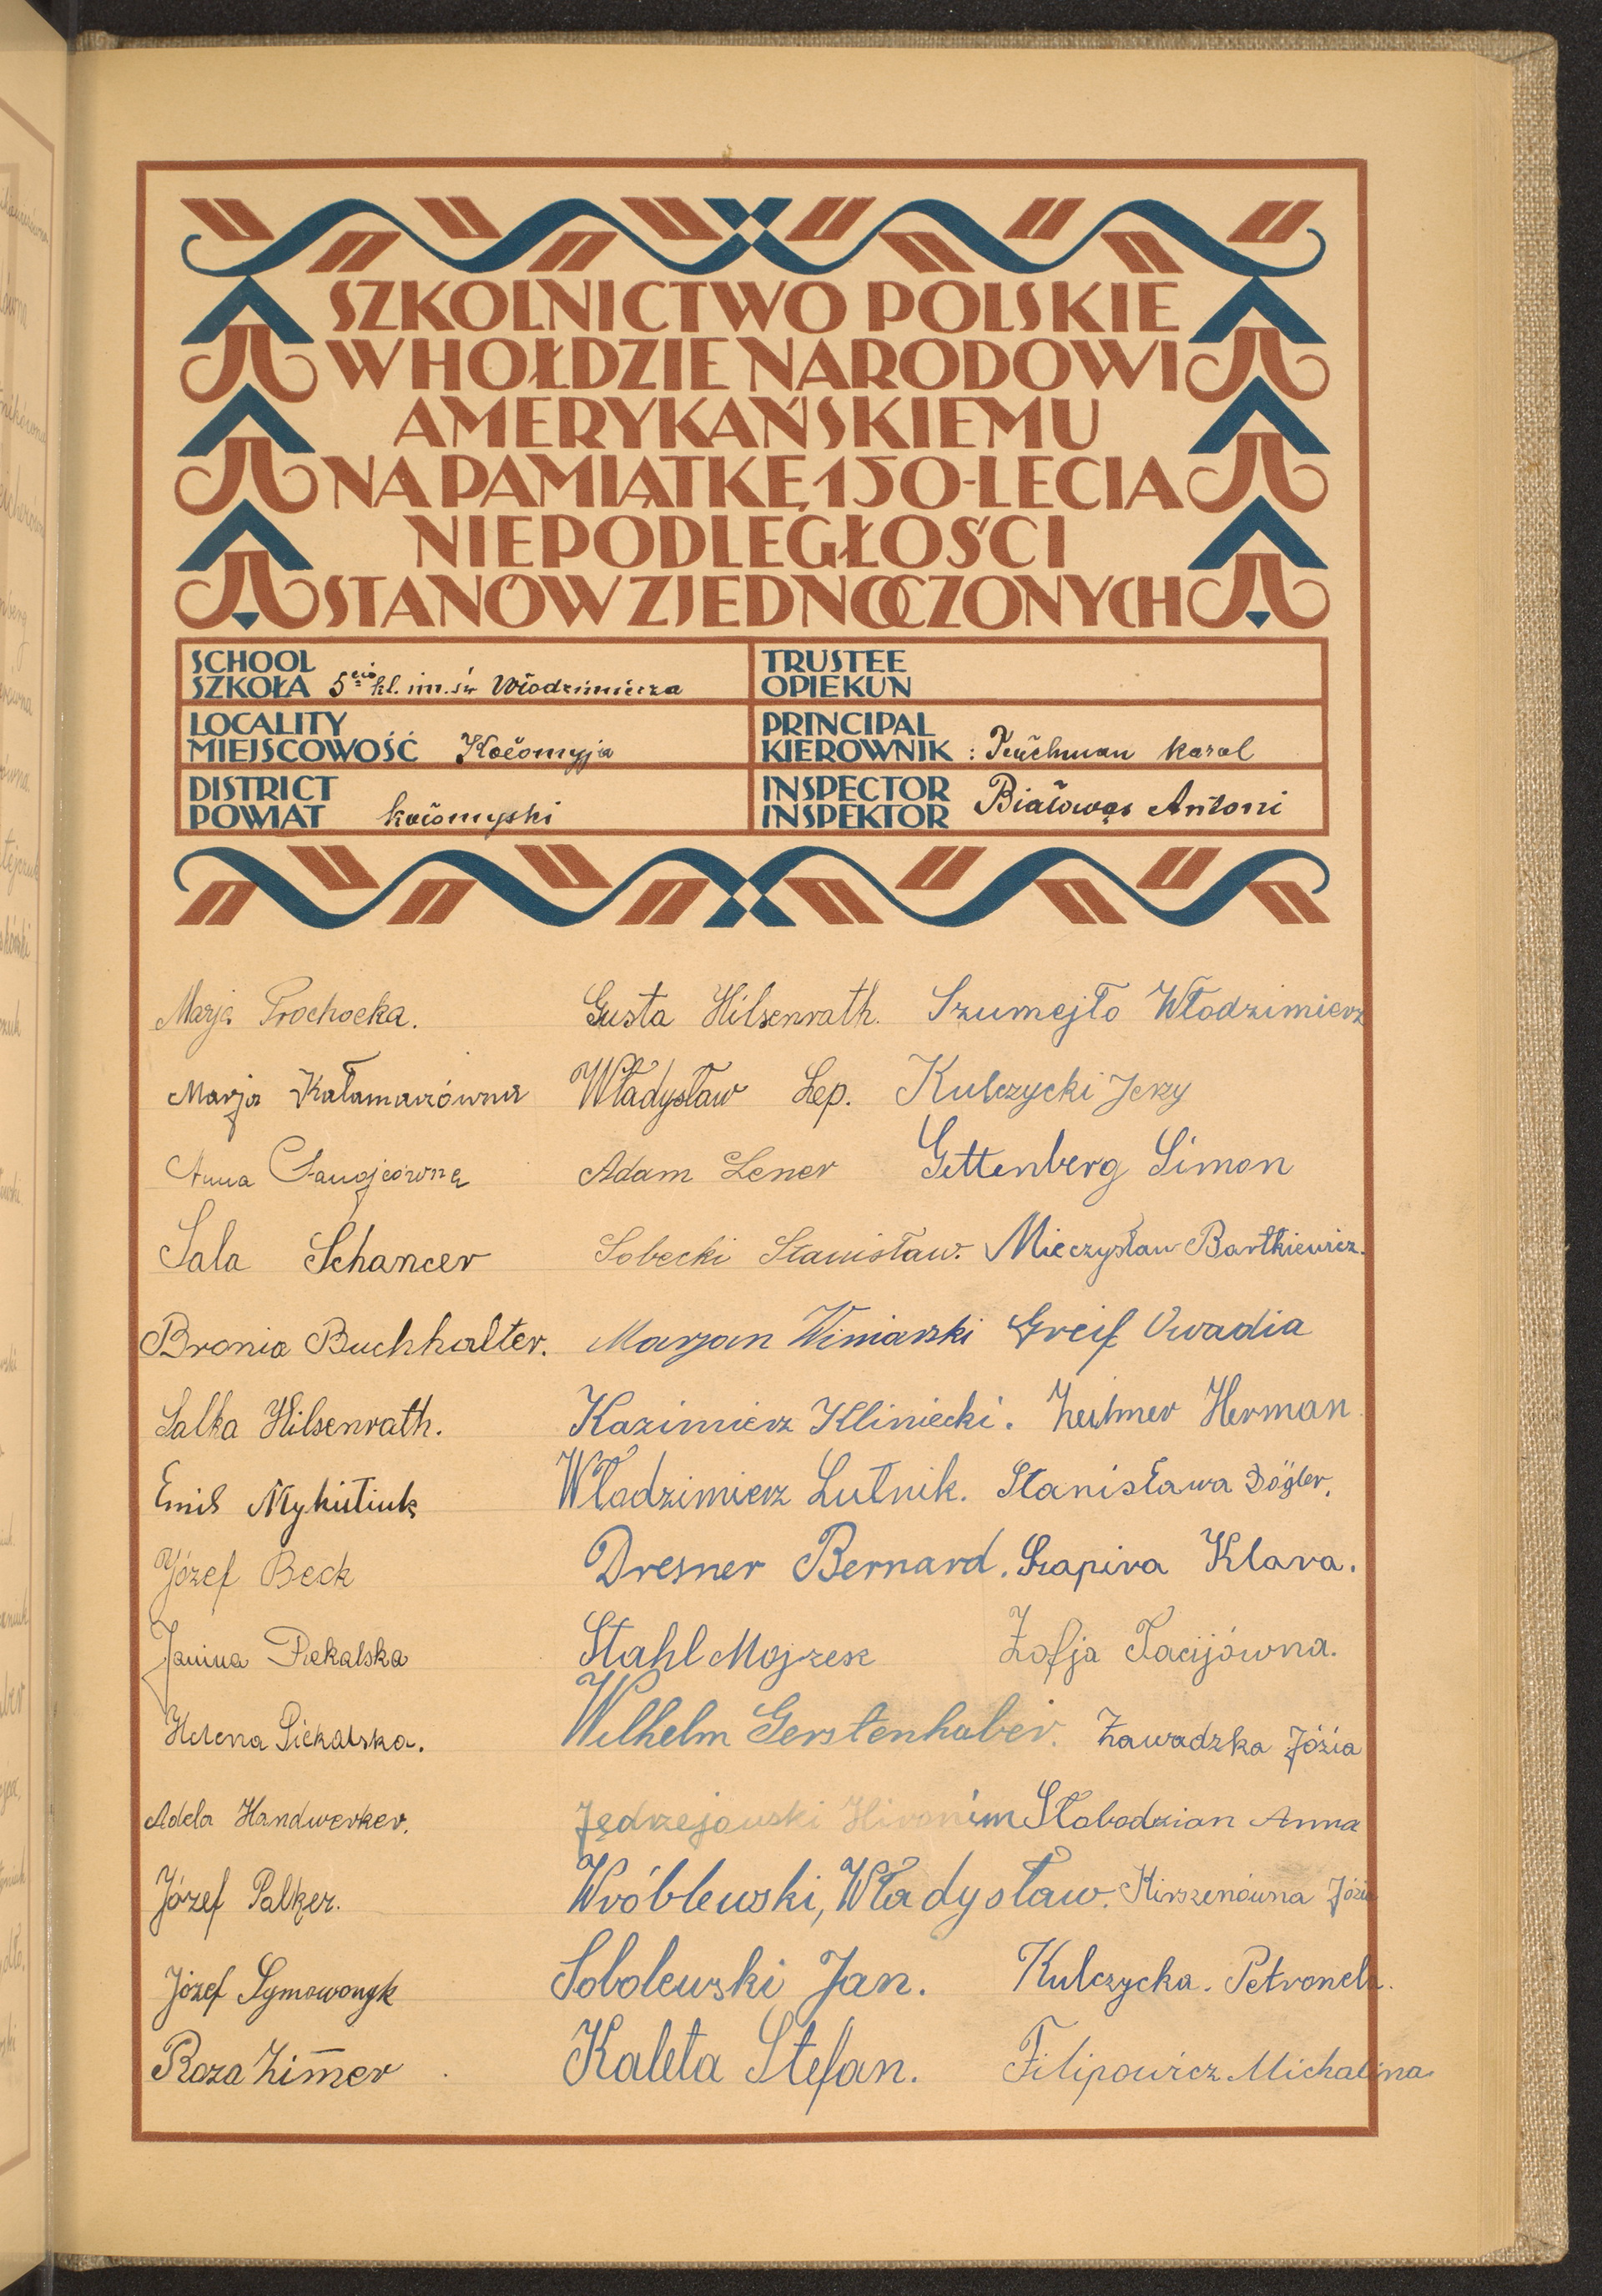 SZKOLNICTWO POLSKIE
W HOŁDZIE NARODOWI
AMERYKAŃSKIEMU
NA PAMIĄTKĘ 150-LECIA
NIEPODLEGŁOŚCI
STANÓW ZJEDNOCZONYCH
SCHOOL
SZKOŁA 5cio kl. im. św Włodzimierza
TRUSTEE
OPIEKUN
LOCALITY
MIEJSCOWOŚĆ Kołomyja
PRINCIPAL
KIEROWNIK : Karol
DISTRICT
POWIAT kołomyski
INSPECTOR
INSPEKTOR Białowąs Antoni
Marja Prochocka. Gusta Hilsenrath. Szumejło Włodzimierz
Marja Władysław Lep. Kulczycki Jerzy
Anna Adam Lener Gettenberg Simon
Sala Schancer Sobecki Stanisław. Mieczysław Bartkiewicz.
Bronia Buchhalter. Marjan Winiarski Greif Owadia
Salka Hilsenrath. Kazimierz Kliniecki. Herman
Emil Mykitiuk Włodzimierz Lutnik. Stanisława Dögler.
Józef Beck Dresner Bernard. Szapira Klara.
Janina Piekalska Stahl Mojżesz Zofja Pacijówna.
Helena Piekalska. Wilhelm Gerstenhaber. Zawadzka Józia
Adela Handwerker. Jędrzejowski Hironim Słobodzian Anna
Józef Palker. Wróblewski, Władysław. Kirszenówna Józia
Józef Sobolewski Jan. Kulczycka. Petronela.
Roza Zimer Kaleta Stefan. Filipowicz Michalina